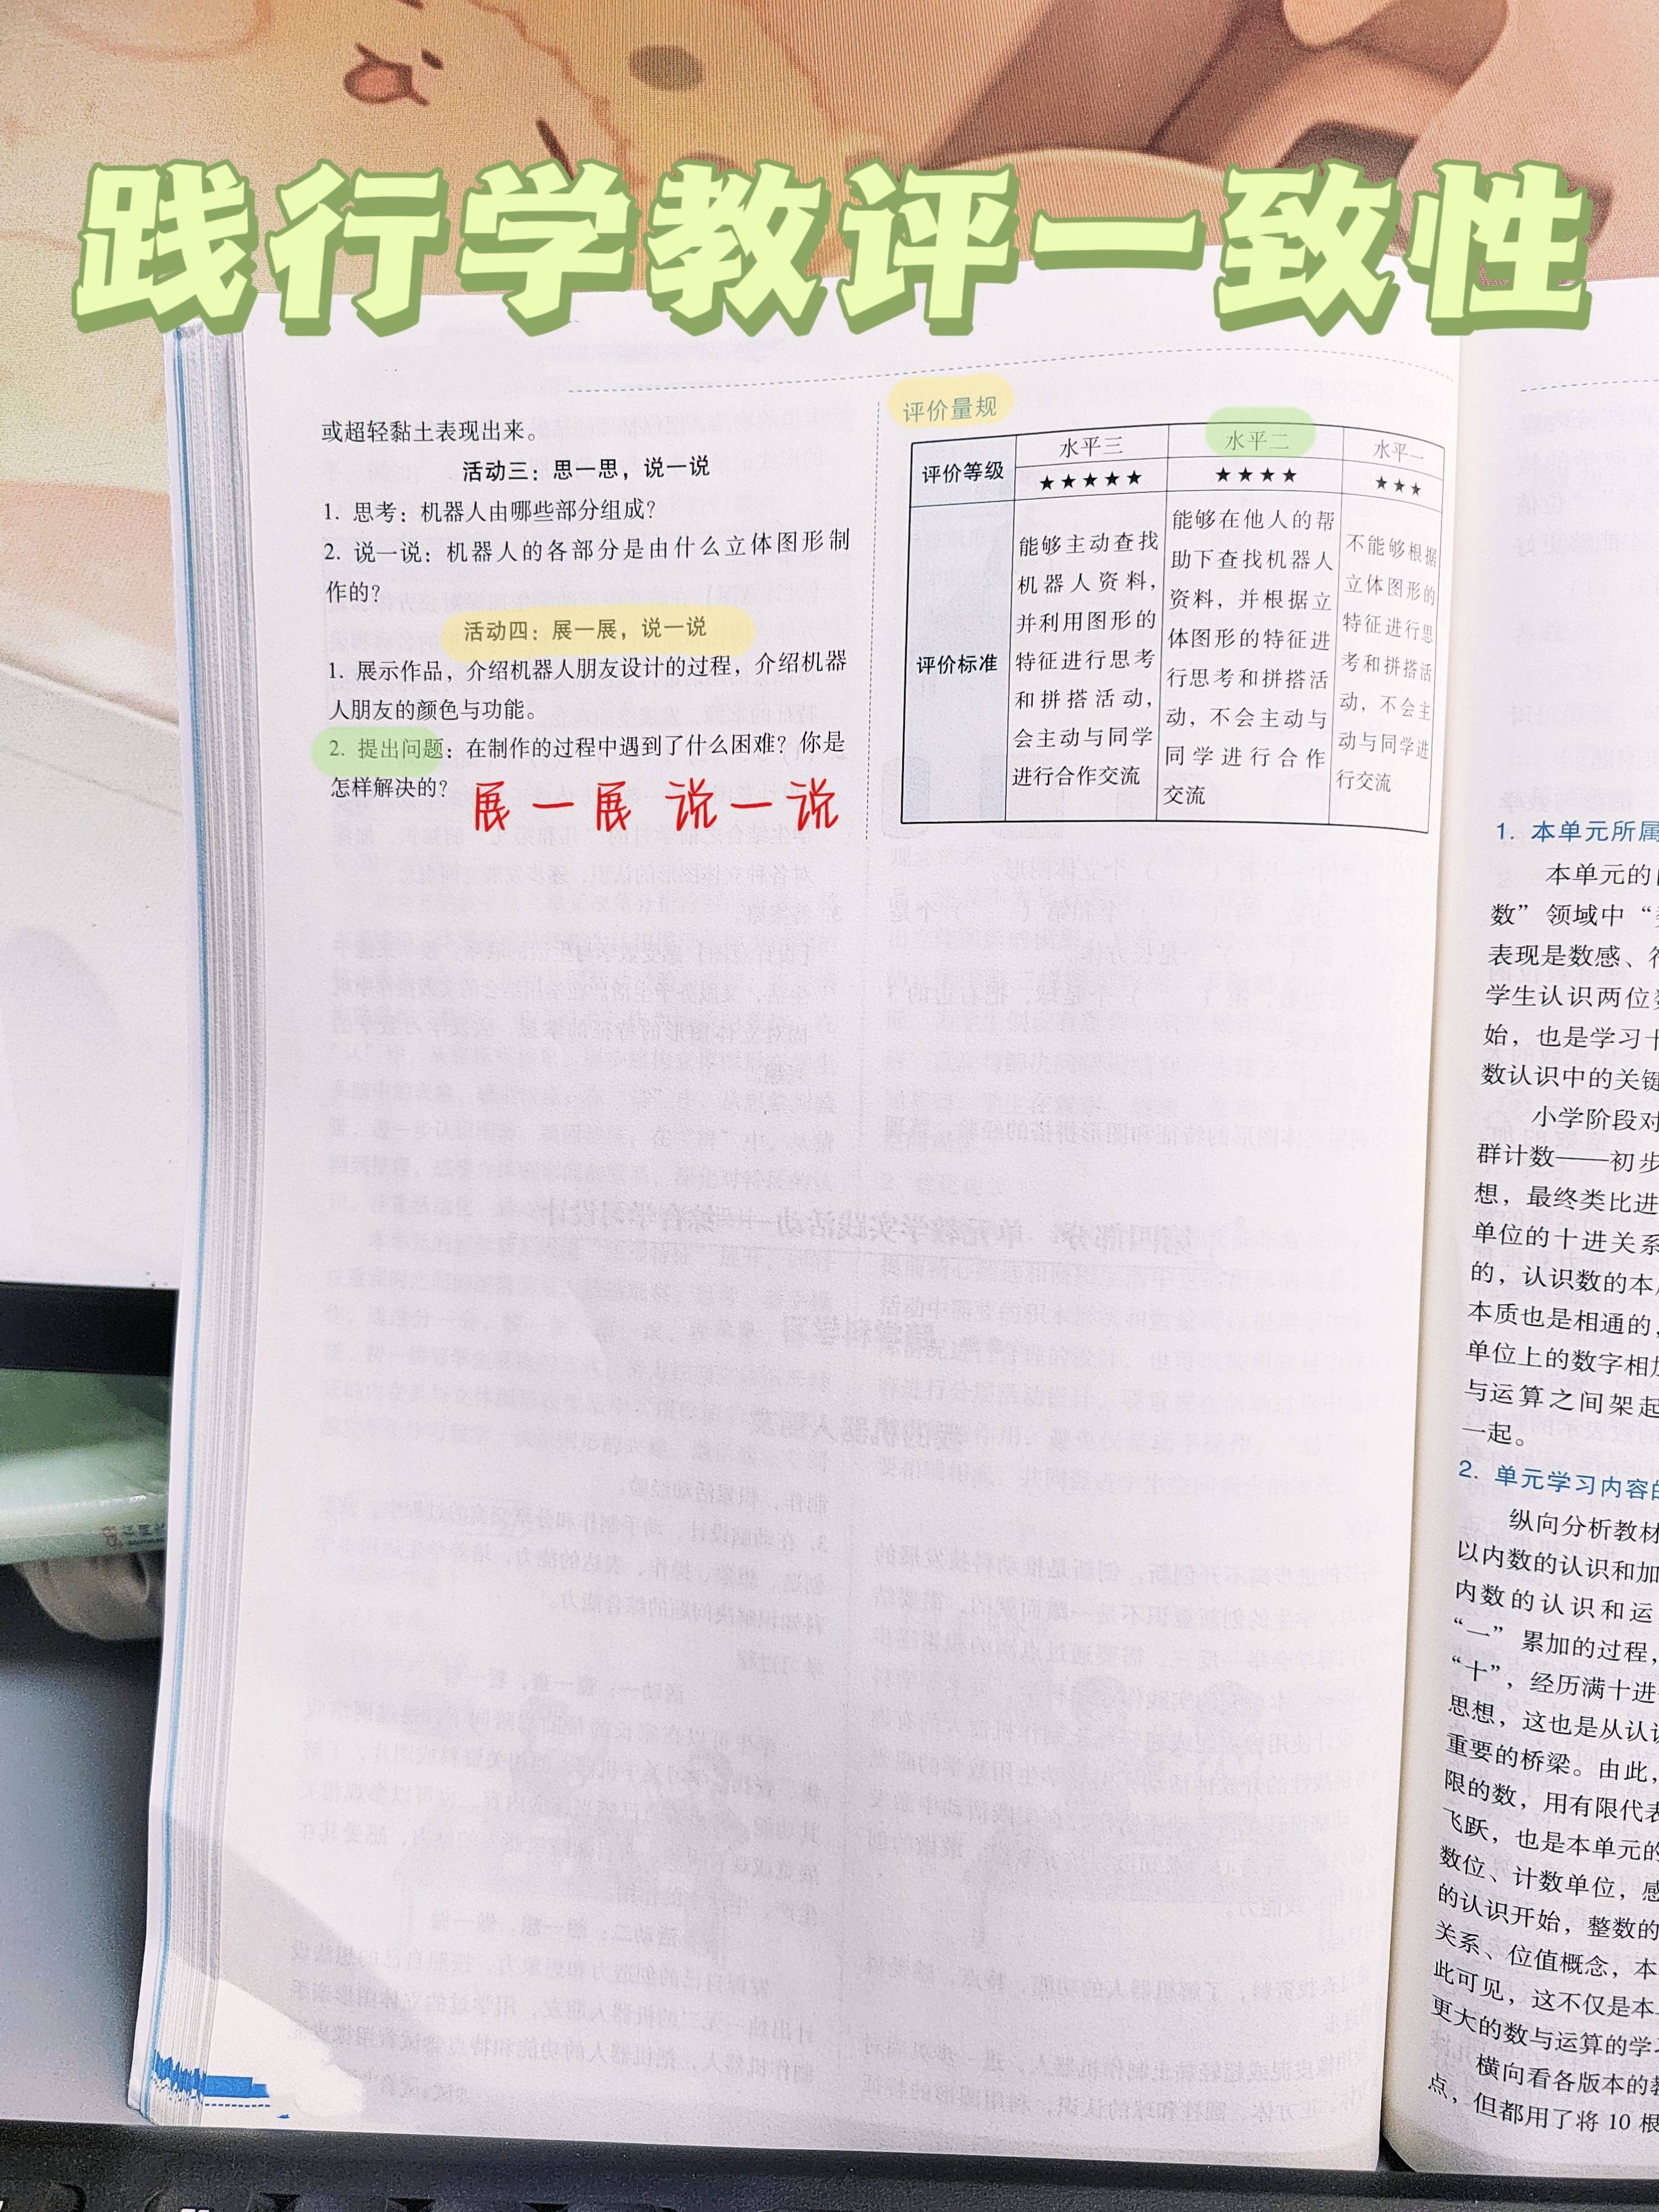 践行学教评一致性
或超轻黏土表现出来。
活动三：思一思，说一说
1. 思考：机器人由哪些部分组成？
2. 说一说：机器人的各部分是由什么立体图形制
作的？
活动四：展一展，说一说
1. 展示作品，介绍机器人朋友设计的过程，介绍机器
人朋友的颜色与功能。
2. 提出问题：在制作的过程中遇到了什么困难？你是
怎样解决的？
展一展 说一说
评价量规
评价等级
水平三
★★★★★
水平二
★★★★
水平一
★★★
评价标准
能够主动查找
机器人资料，
并利用图形的
特征进行思考
和拼搭活动，
会主动与同学
进行合作交流
能够在他人的帮
助下查找机器人
资料，并根据立
体图形的特征进
行思考和拼搭活
动，不会主动与
同学进行合作
交流
不能够根据
立体图形的
特征进行思
考和拼搭活
动，不会主
动与同学进
行交流
1. 本单元所属
本单元的
数”领域中“
表现是数感、符
学生认识两位数
始，也是学习十
数认识中的关键
小学阶段对
群计数——初步
想，最终类比进
单位的十进关系
的，认识数的本
本质也是相通的，
单位上的数字相加
与运算之间架起
一起。
2. 单元学习内容的
纵向分析教材
以内数的认识和加
内数的认识和运
“一”累加的过程，
“十”，经历满十进
思想，这也是从认识
重要的桥梁。由此，
限的数，用有限代表
飞跃，也是本单元的
数位、计数单位，感
的认识开始，整数的
关系、位值概念，本
此可见，这不仅是本
更大的数与运算的学习
横向看各版本的教
点，但都用了将 10 根